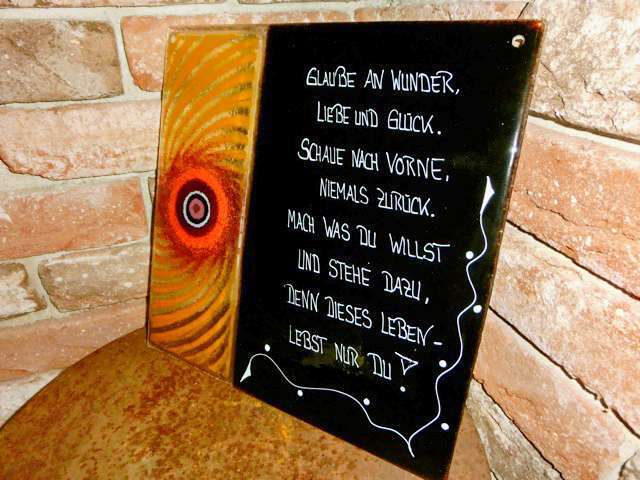 GLAUBE AN WUNDER,
LIEBE UND GLÜCK.
SCHAUE NACH VORNE,
NIEMALS ZURÜCK.
MACH WAS DU WILLST
UND STEHE DAZU,
DENN DIESES LEBEN-
LEBST NUR DU!